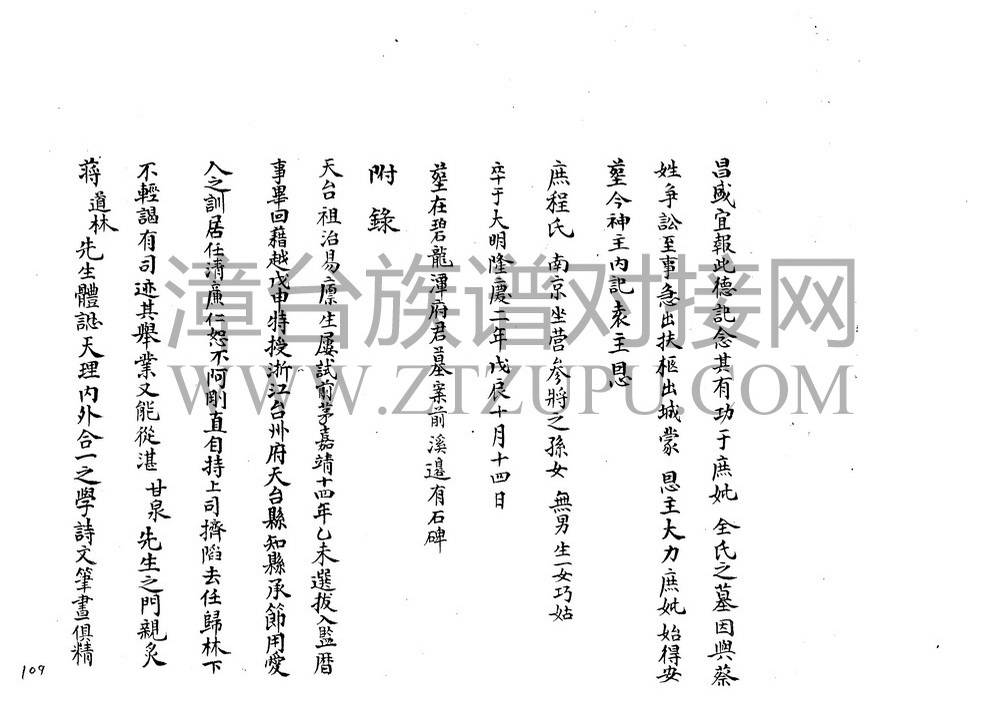 昌盛宜報此德記念其有功于庶妣 全氏之墓因與蔡
姓爭訟至事急出扶柩出城蒙 恩主大力庶妣始得安
塟今神主內記袁主恩
庶程氏 南京坐营參將之孫女 無男生一女巧姑
卒于大明隆慶二年戊辰十月十四日
塟在碧龍潭府君墓案前溪邊有石碑
附錄
天台祖治易廪生屢試前茅嘉靖十四年乙未選拔入監曆
事畢回藉越戊申特授浙江台州府天台縣知縣承節用愛
人之訓居任清廉仁恕不阿剛直自持上司擠陷去任歸林下
不輕謁有司迹其舉業又能從湛 甘泉 先生之門親炙
蔣道林先生體認天理內外合一之學詩文筆畫俱精
109
漳台族谱对接网
WWW.ZTZUPU.COM